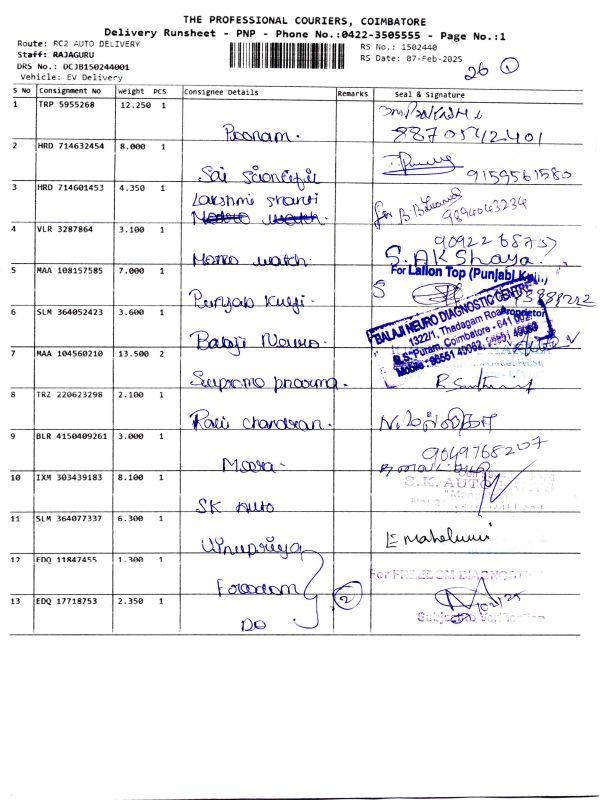 THE PROFESSIONAL COURIERS, COIMBATORE
Delivery Runsheet - PNP - Phone No.:0422-3505555 - Page No.:1
Route: PC2 AUTO DELIVERY
RS No.: 1502440
Staff: RAJAGURU
RS Date: 07-Feb-2025
DRS No.: DCJB150244001
26 1
Vehicle: EV Delivery
S No Consignment No Weight PCS Consignee Details Remarks Seal & Signature
1 TRP 5955268 12.250 1
Poonam. 8870542401
2 HRD 714632454 8.000 1
Sai Scientific 9159561580
3 HRD 714601453 4.350 1
Lakshmi
for 9894043234
4 VLR 3287864 3.100 1
Metro watch. S. AKShaya.
5 MAA 108157585 7.000 1
For Lallon Top (Punjabi Kulfi)
Punjab Kulfi. S
6 SLM 364052423 3.600 1
BALAJI NEURO DIAGNOSTIC CENTRE
1322/1, Thadagam Road
Proprietor
R.S. Puram, Coimbatore - 641 002.
Balaji Neuro
7 MAA 104560210 13.500 2
Supreme pharma.
8 TRZ 220623298 2.100 1
Ravi chandran.
9 BLR 4150409261 3.000 1
Meera. 9049768207
10 IXM 303439183 8.100 1
S.K. AUTO
SK Auto
11 SLM 364077337 6.300 1
Vishnupriya
12 EDQ 11847455 1.300 1
For FREEDOM DIAGNOSTIC
Freedom 2
13 EDQ 17718753 2.350 1
Subject to Verification
DO